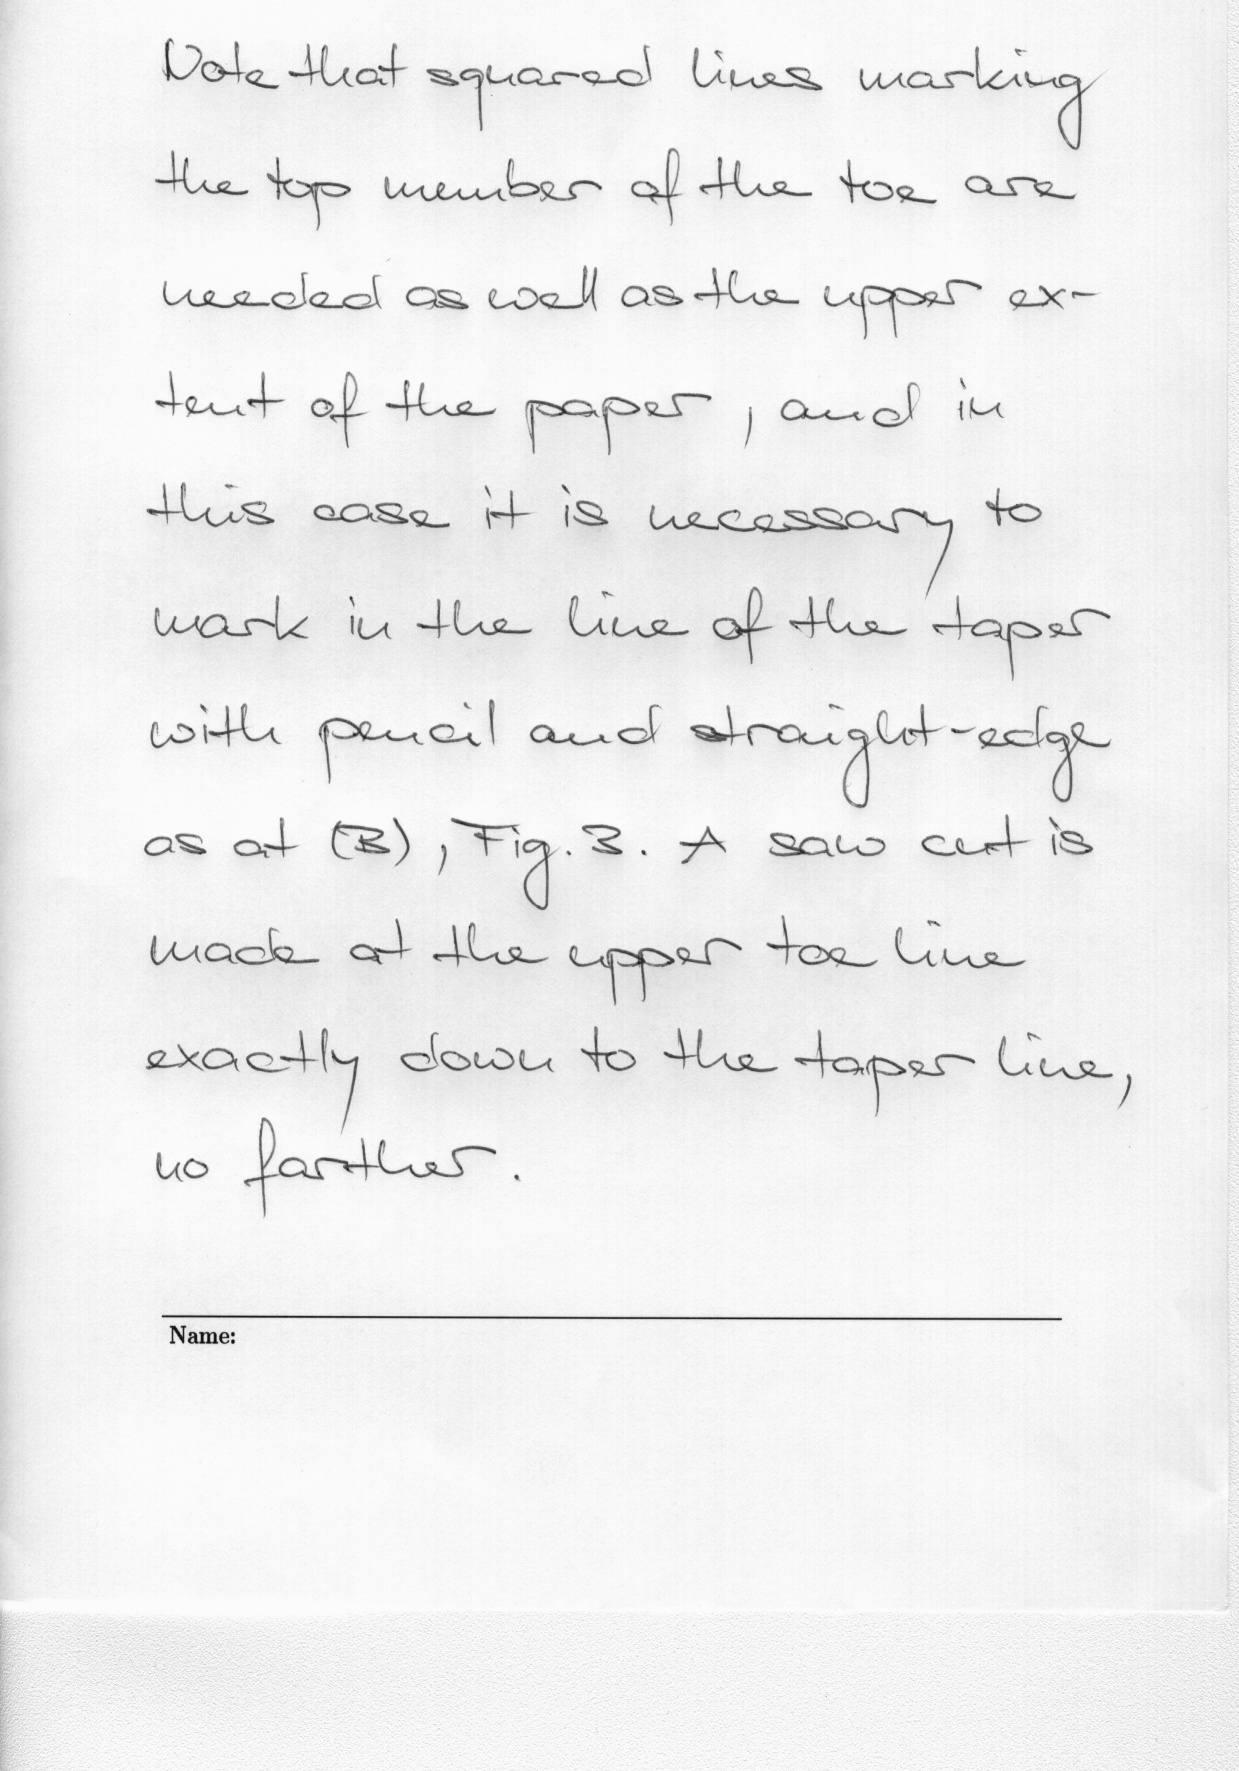 Note that squared lines marking
the top member of the toe are
needed as well as the upper ex-
tent of the paper, and in
this case it is necessary to
mark in the line of the taper
with pencil and straight-edge
as at (B), Fig. 3. A saw cut is
made at the upper toe line
exactly down to the taper line,
no farther.
Name: